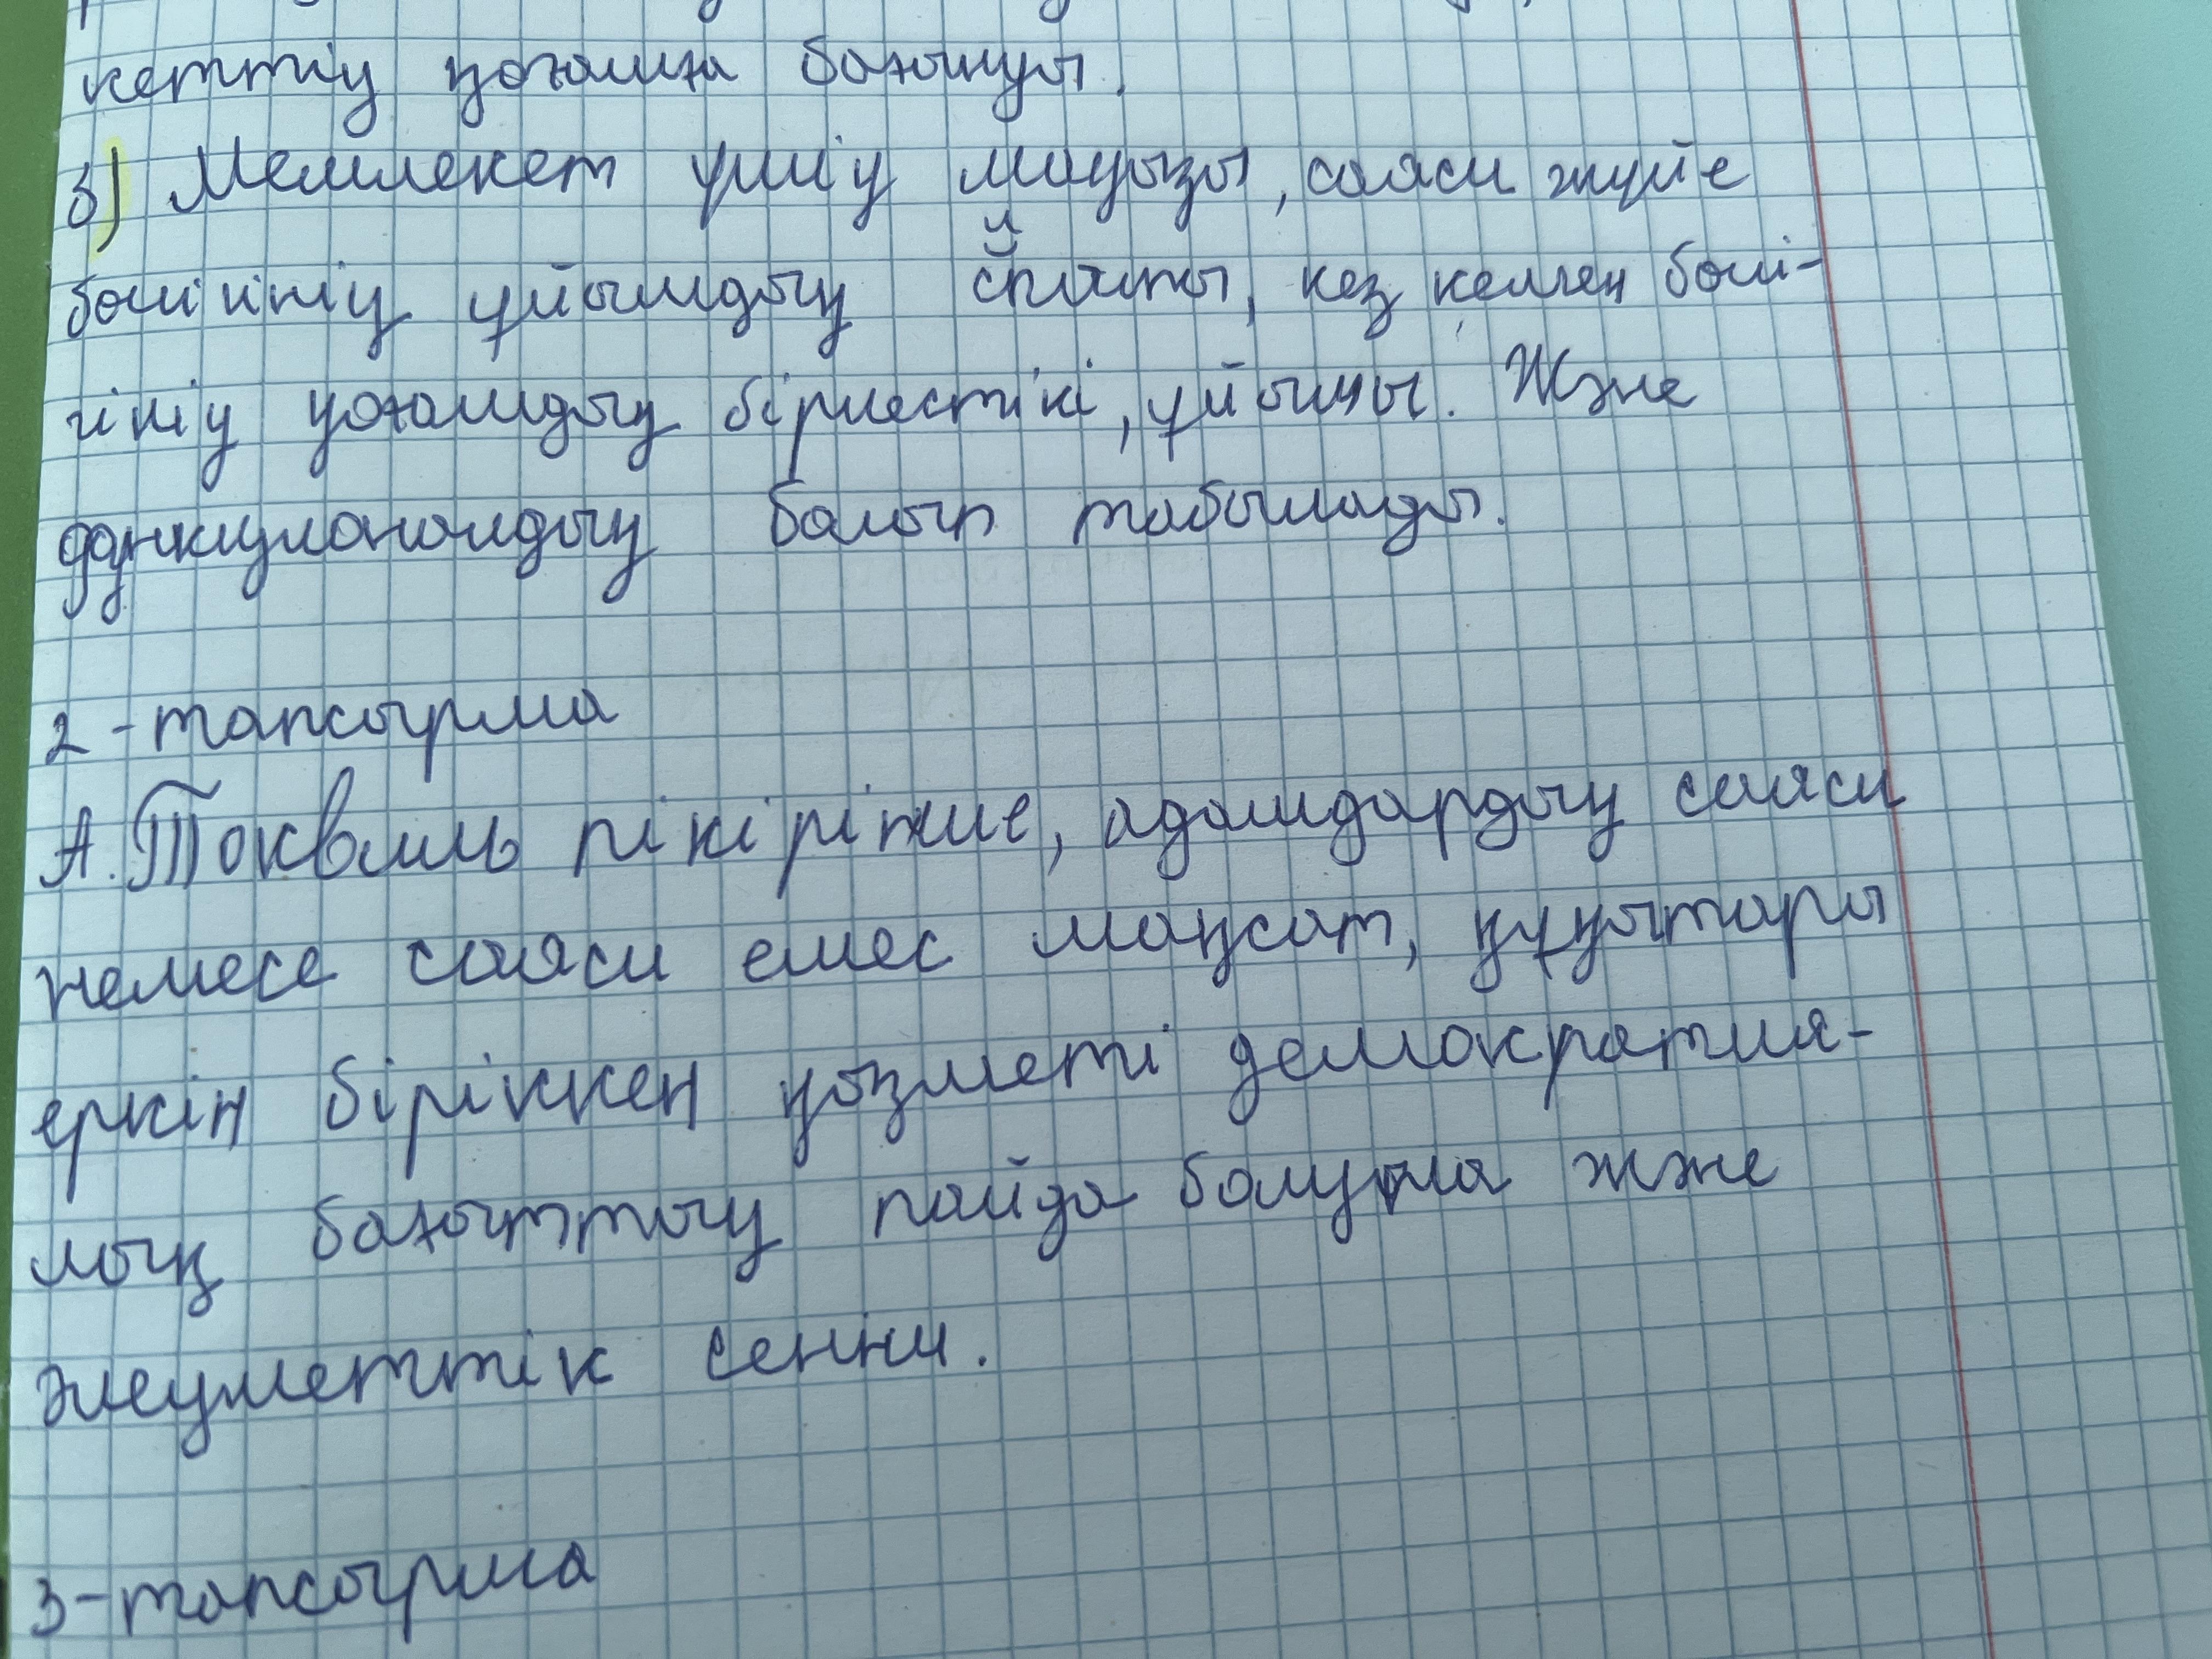 кеттің қоғамға бағынуы.
3) Мемлекет үшің маңызы, саяси жүйе
бөлігінің ұйымдық кез келген бөлі-
гінің қоғамдық бірлестікі, ұйымы. Және
болып табылады.
2-тапсырма
А.Токвиль пікірінше, адамдардың саяси
немесе саяси емес мақсат, құқытары
еркін біріккен қозметі демократия-
лық бағыттың пайда болуына және
жеуметтік
3-тапсырма